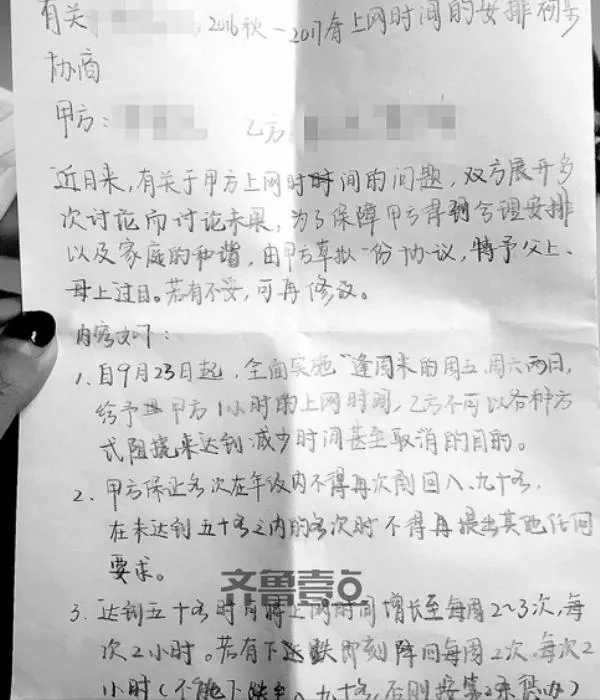 有关 2016秋-2017春上网时间的安排初步
协商
甲方: 乙方:
近日来,有关于甲方上网时时间的问题,双方展开多
次讨论而讨论未果,为了保障甲方得到合理安排
以及家庭的和谐,由甲方草拟一份协议,特予父上、
母上过目。若有不妥,可再修改。
内容如下:
1. 自9月23日起,全面实施"逢周末的周五、周六两日,
给予甲方1小时的上网时间,乙方不可以各种方
式阻挠来达到减少时间甚至取消的目的。
2. 甲方保证名次在年级内不得再次削回八、九十名,
在未达到五十名之内的名次时不得再提出其他任何
要求。
齐鲁壹点
3. 达到五十名时自将上网时间增长至每周2~3次,每
次2小时。若有下 跌即刻降回每周2次,每次2
小时(不能下跌至八、九十名,否则按第2条办)